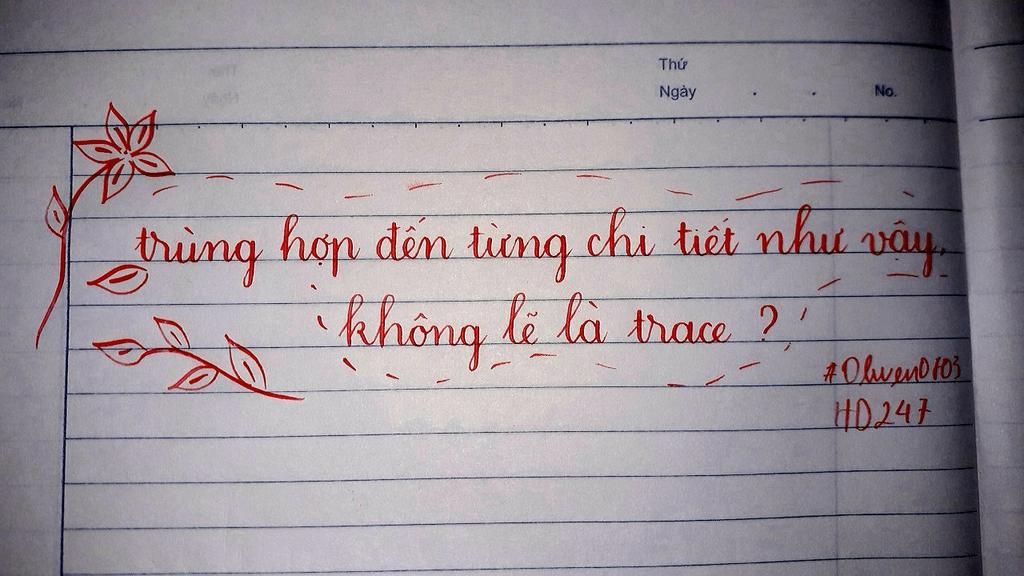 Thứ
Ngày . . No.
trùng hợp đến từng chi tiết như vậy,
không lẽ là trace ?
HD247